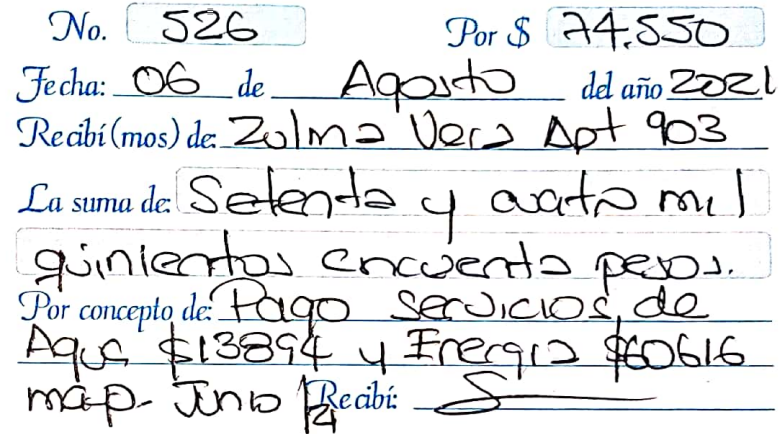 No. 526 Por $ 74.550
Fecha: 06 de Agosto del año 2021
Recibí(mos) de: Zulma Vera Apt 903
La suma de: Setenta y cuatro mil
quinientos cincuenta pesos.
Por concepto de: Pago Servicios, de
Agua $13894 y Energia $60616
Junio Recibí: